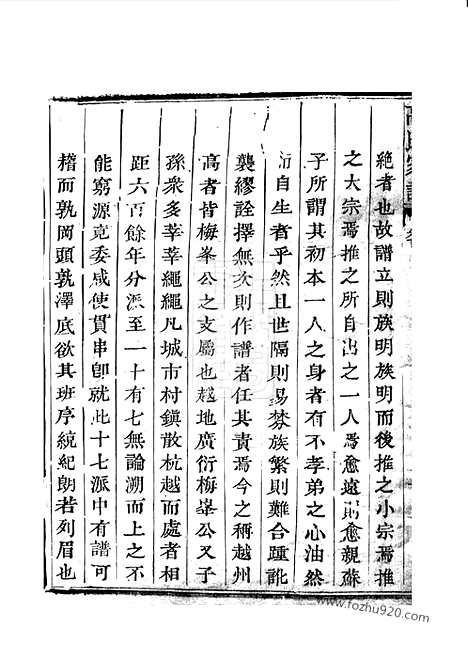 絶者也故譜立則族明族明而後推之小宗焉推
之大宗焉推之所自出之一人焉愈遠則愈親蘇
子所謂其初本一人之身者有不孝弟之心油然
而自生者乎然且世隔則易棼族繁則難合踵訛
襲繆詮擇無次則作譜者任其責焉今之稱越州
高者皆梅峯公之支屬也越地廣衍梅峯公又子
孫衆多莘莘繩繩凡城市村鎭散杭越而處者相
距六百餘年分派至一十有七無論溯而上之不
能窮源竟委咸使貫串卽就此十七派中有譜可
稽而孰岡頭孰澤底欲其班序統紀朗若列眉也
www.fozhu920.com